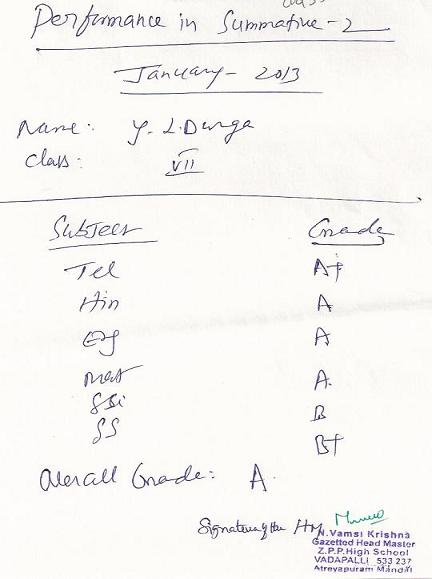 Performance in Summative-2
January- 2013
Name: Y. L. Durga
Class: VII
Subject Grade
Tel A+
Hin A
Eng A
Mat A.
GSi B
SS B+
Overall Grade: A.
Signature of the HM
N.Vamsi Krishna
Gazetted Head Master
Z.P.P.High School
VADAPALLI_533 237
Atreyapuram Mandal